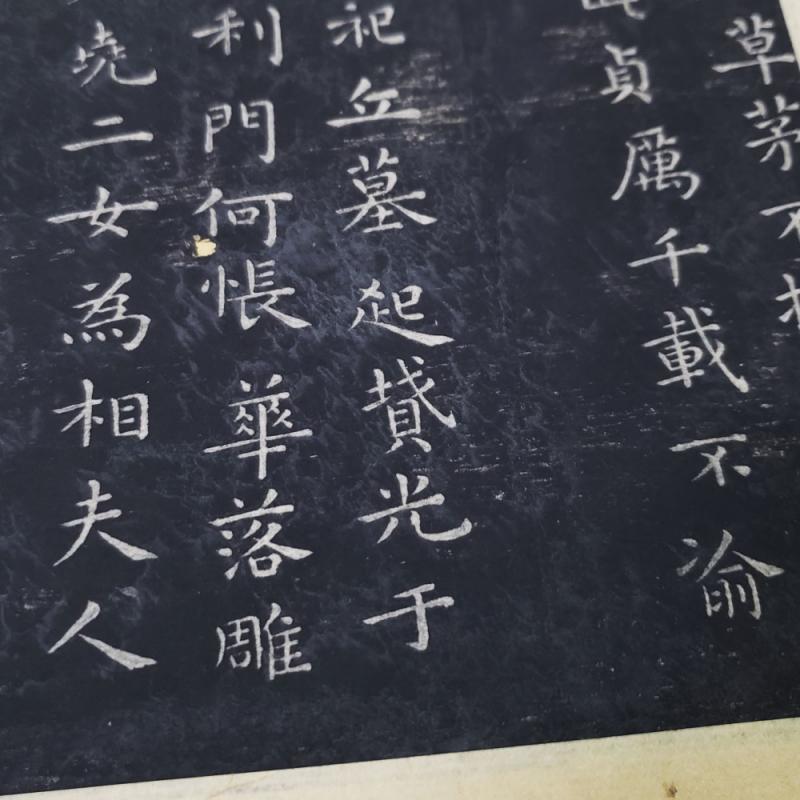 草茅不
貞厲千載不渝
祀丘墓起墳光于
利門何悵華落雕
墝二女為相夫人